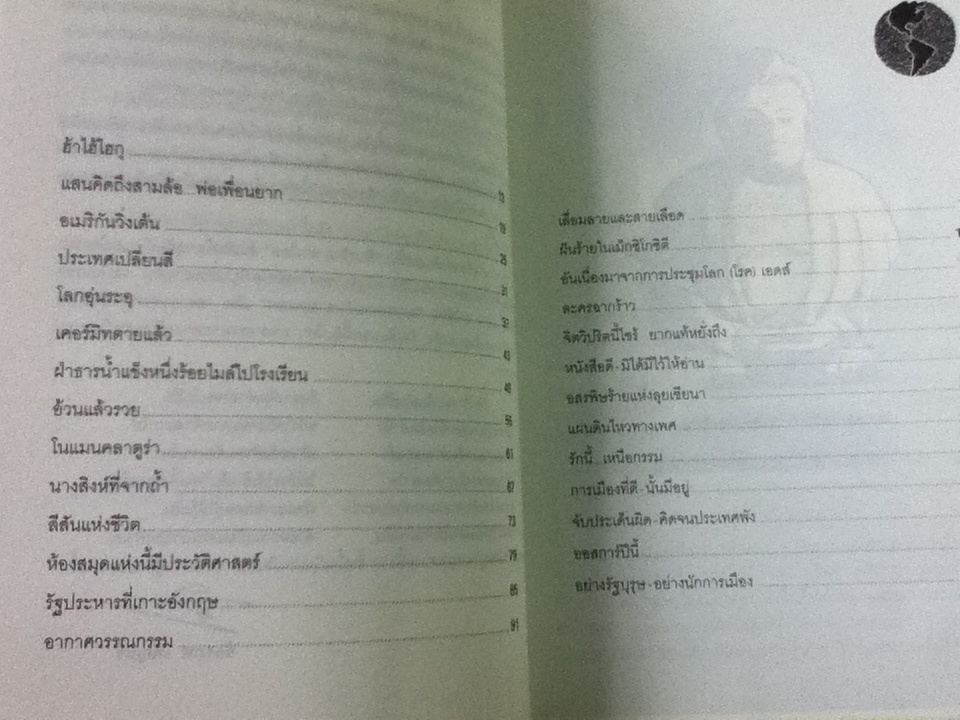 ฮ้าไฮ้ไฮกุ
แสนคิดถึงสามล้อ...พ่อเพื่อนยาก 13
อเมริกันวิ่งเต้น 19
ประเทศเปลี่ยนสี 25
โลกอุ่นระอุ 31
เคอร์มิทตายแล้ว 37
ฝ่าธารน้ำแข็งหนึ่งร้อยไมล์ไปโรงเรียน 43
อ้วนแล้วรวย 49
โนแมนคลาตูร่า 55
นางสิงห์ที่จากถ้ำ 61
สีสันแห่งชีวิต 67
ห้องสมุดแห่งนี้มีประวัติศาสตร์ 73
รัฐประหารที่เกาะอังกฤษ 79
อากาศวรรณกรรม 85
91
เลื่อมลายและสายเลือด
ฝันร้ายในเม็กซิโกซิตี
อันเนื่องมาจากการประชุมโลก (โรค) เอดส์
ละครฉากร้าว
จิตวิปริตนี้ไซร้ ยากแท้หยั่งถึง
หนังสือดี-มิได้มีไว้ให้อ่าน
อสรพิษร้ายแห่งลุยเซียนา
แผ่นดินไหวทางเพศ
รักนี้...เหนือกรรม
การเมืองที่ดี-นั้นมีอยู่
จับประเด็นผิด-คิดจนประเทศพัง
ออสการ์ปีนี้
อย่างรัฐบุรุษ-อย่างนักการเมือง